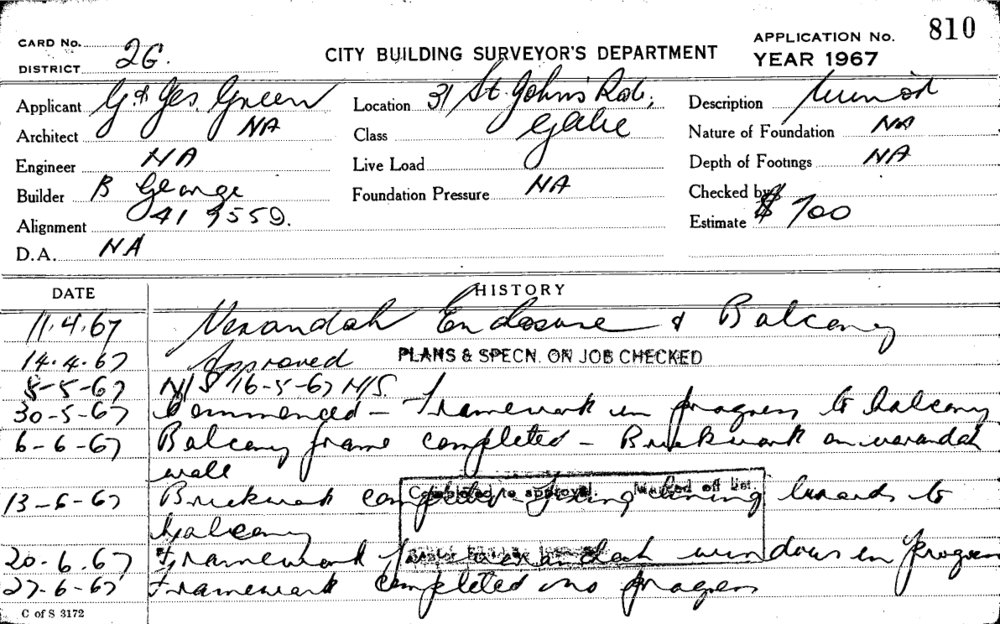 810
CARD No.
CITY BUILDING SURVEYOR'S DEPARTMENT
APPLICATION No.
DISTRICT 26.
YEAR 1967
Applicant G & Green
Location 31 St. John's Rd.,
Description
Architect NA
Class Glebe
Nature of Foundation NA
Engineer NA
Live Load
Depth of Footings NA
Builder B George
Foundation Pressure NA
Checked by
Alignment 41 9559.
Estimate $ 700
D.A. NA
DATE HISTORY
11.4.67 Verandah Enclosure & Balcony
14.4.67 Approved PLANS & SPECN. ON JOB CHECKED
5-5-67 N/S 16-5-67 N/S.
30-5-67 Commenced - Framework in progress to balcony
6-6-67 Balcony frame completed - Brickwork on verandah
wall
13-6-67 Brickwork completed fixing lining boards to
balcony
Completed to approval Marked off list
20.6.67 Framework for verandah windows in progress
27-6-67 Framework completed no progress
C of S 3172